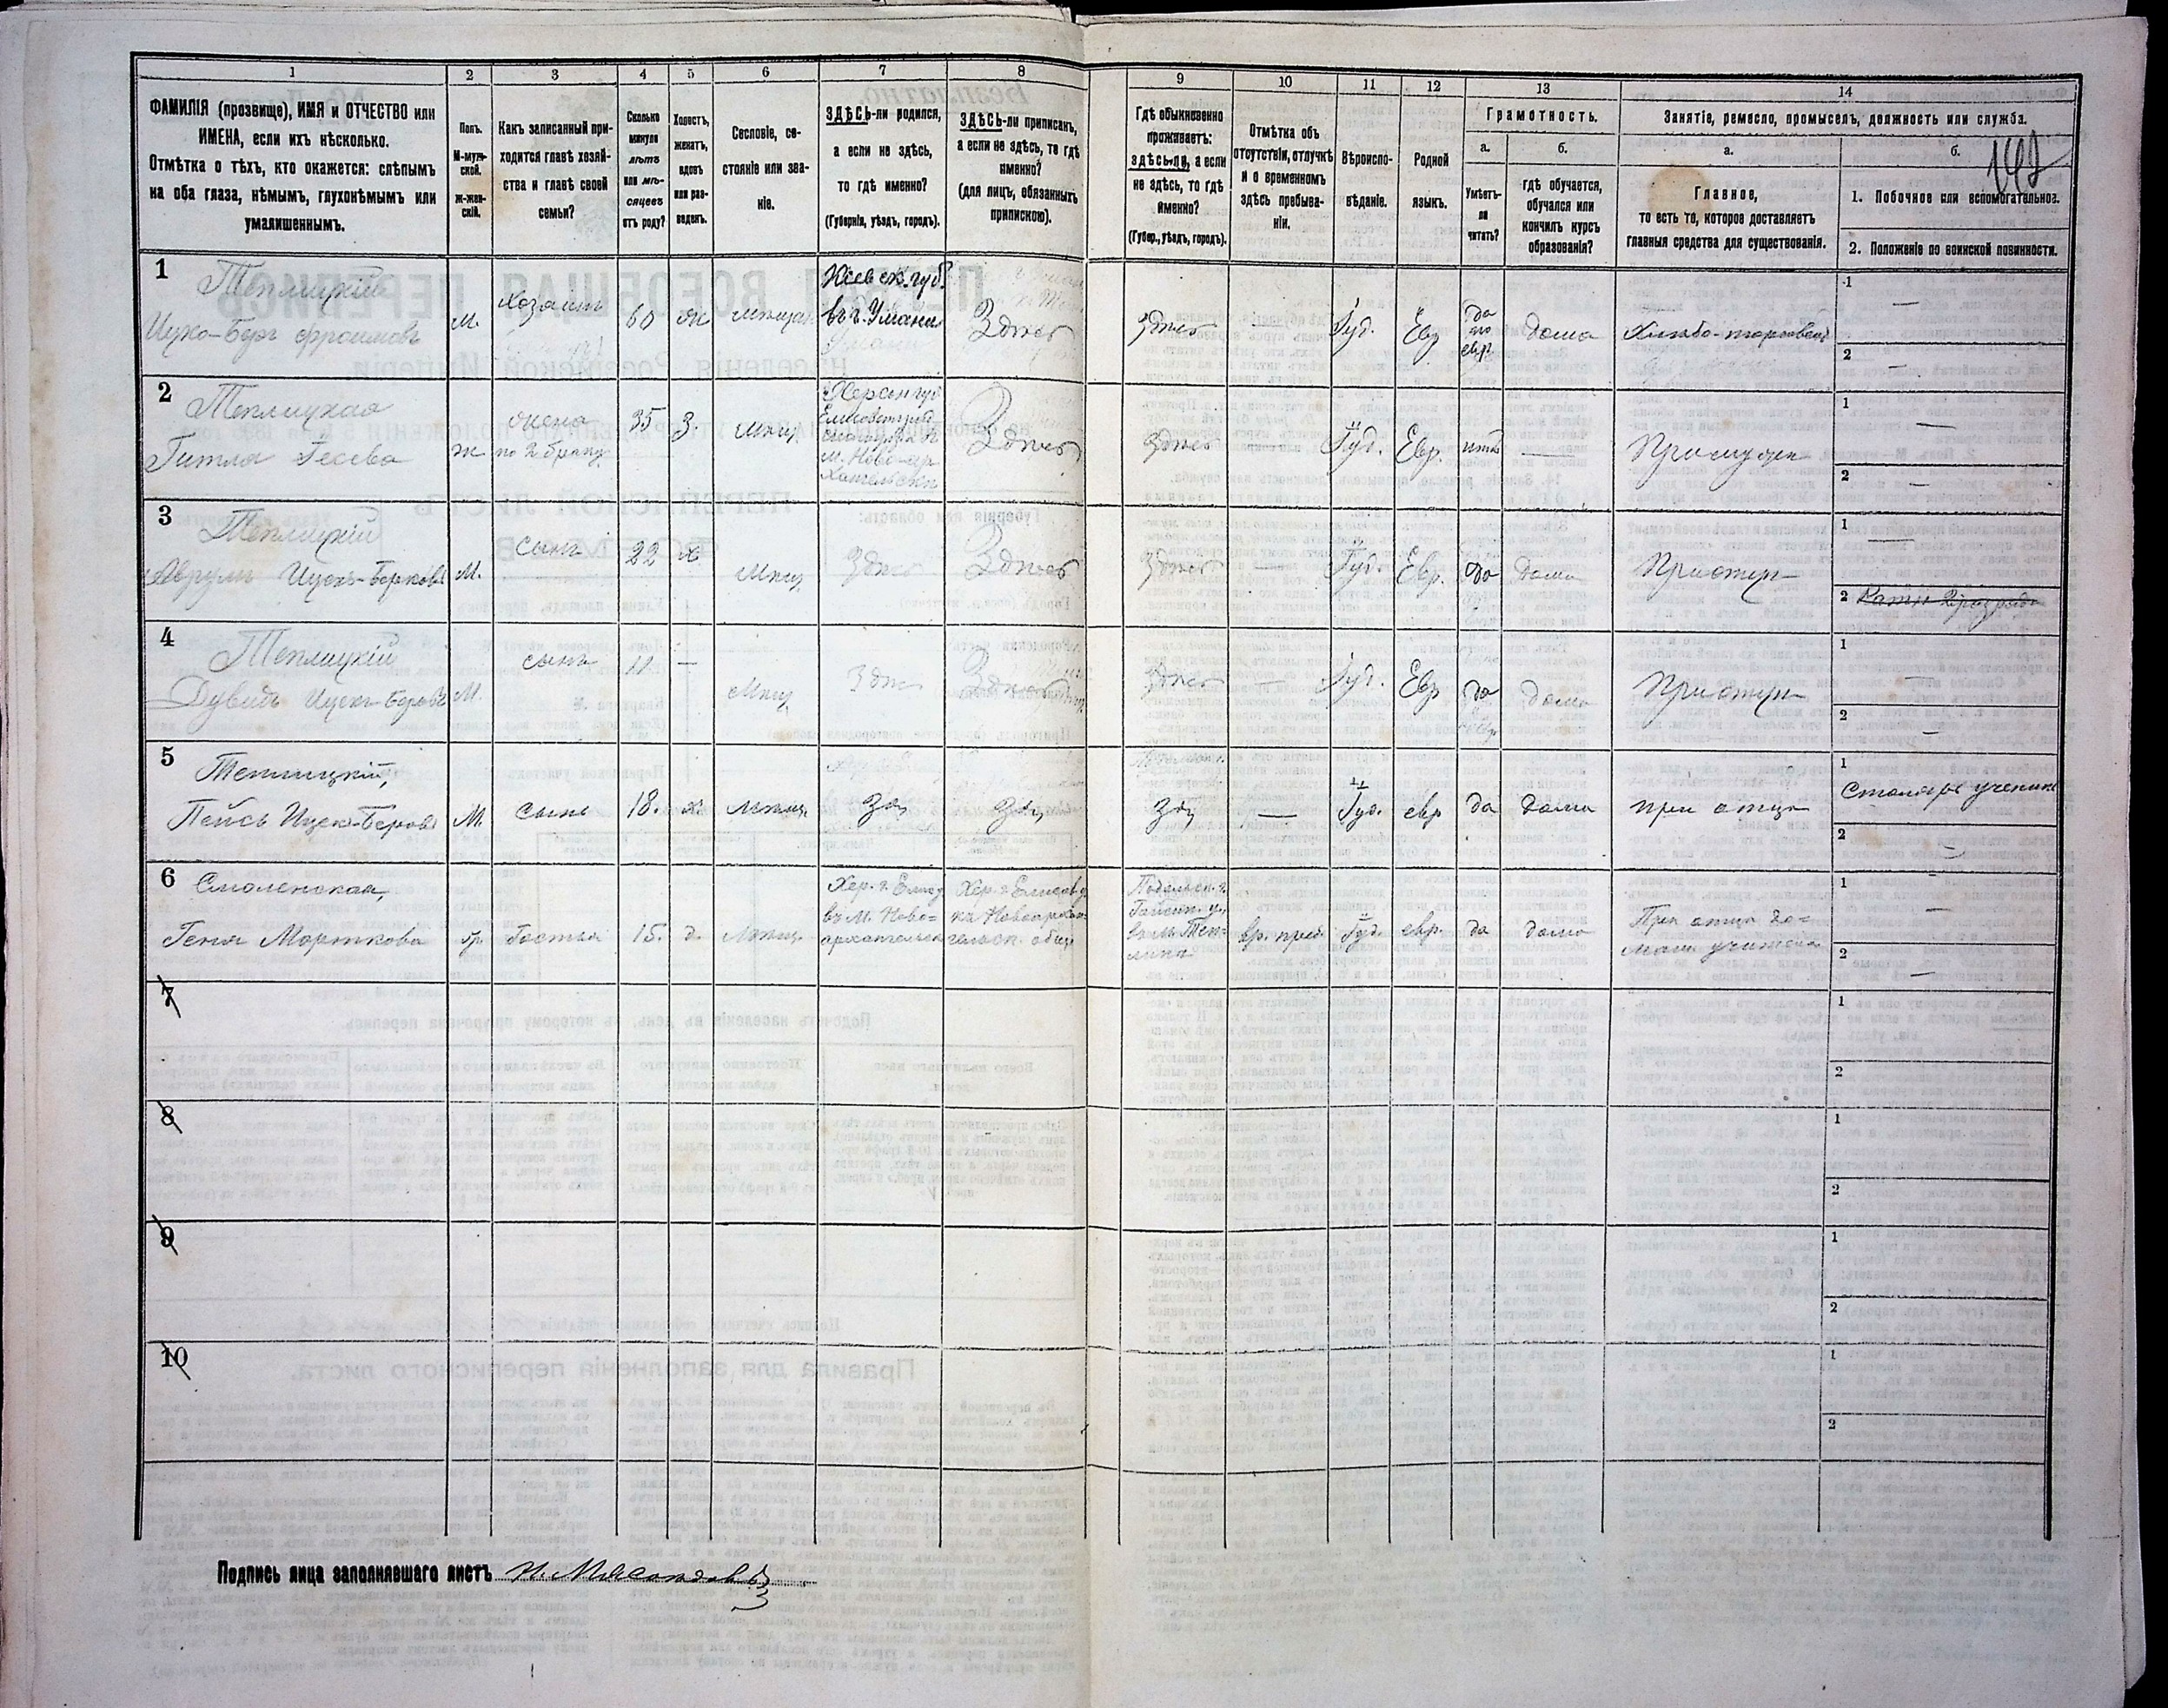 1
2
3
4
5
6
7
8
9
10
11
12
13
14
ФАМИЛІЯ (прозвище), ИМЯ и ОТЧЕСТВО или
ИМЕНА, если ихъ нѣсколько.
Отмѣтка о тѣхъ, кто окажется: слѣпымъ
на оба глаза, нѣмымъ, глухонѣмымъ или
умалишеннымъ.
Полъ.
М-муж-
ской.
Ж-жен-
скій.
Какъ записанный при-
ходится главѣ хозяй-
ства и главѣ своей
семьи?
Сколько
минуло
лѣтъ
или мѣ-
сяцевъ
отъ роду?
Холостъ,
женатъ,
вдовъ
или раз-
веденъ.
Сословіе, со-
стояніе или зва-
ніе.
ЗДѢСЬ-ли родился,
а если не здѣсь,
то гдѣ именно?
(Губернія, уѣздъ, городъ).
ЗДѢСЬ-ли приписанъ,
а если не здѣсь, то гдѣ
именно?
(для лицъ, обязанныхъ
припискою).
Гдѣ обыкновенно
проживаетъ:
здѣсь-ли, а если
не здѣсь, то гдѣ
именно?
(Губер., уѣздъ, городъ).
Отмѣтка объ
отсутствіи, отлучкѣ
и о временномъ
здѣсь пребыва-
ніи.
Вѣроиспо-
вѣданіе.
Родной
языкъ.
Грамотность.
а.
Умѣетъ-
ли
читать?
б.
гдѣ обучается,
обучался или
кончилъ курсъ
образованія?
Занятіе, ремесло, промыселъ, должность или служба.
а.
Главное,
то есть то, которое доставляетъ
главныя средства для существованія.
б.
1. Побочное или вспомогательное.
2. Положеніе по воинской повинности.
1
Теплицкій
Ицко-Беръ Фроимовъ
М.
хозяинъ
60
ж
мѣщан.
Кіевск. губ.
въ г. Умани
Здѣсь
Здѣсь
—
Іуд.
Евр
да
по
евр.
дома
Хлѣбо-торговецъ
1
—
2
—
2
Теплицкая
Гитля
ж
жена
по 2 браку
35
З.
мѣщ.
Херсон губ
Елисаветград.
м. Ново-ар
хангельскъ
Здѣсь
Здѣсь
Іуд.
Евр.
нѣтъ
—
При мужѣ
1
—
2
—
3
Теплицкій
Аврумъ Ицекъ-Берковъ
М.
сынъ
22
х
мѣщ.
Здѣсь
Здѣсь
Здѣсь
—
Іуд.
Евр.
да
дома
При отцѣ
1
—
2 Ратн. 2 разряда
4
Теплицкій
Дувидъ Ицекъ-Беровъ
М.
сынъ
11
—
мѣщ.
Здѣсь
Здѣсь
Здѣсь
—
Іуд.
Евр
да
дома
При отцѣ
1
—
2
—
5
Теплицкій,
Пейсъ Ицекъ-Беровъ
М.
сынъ
18.
х.
мѣщ.
Зд
Зд
Зд
—
Іуд.
евр
да
дома
при отцѣ
1
Столяръ ученикъ
2
—
6
Смоленская,
Геня Морткова
гостья
15.
д.
мѣщ.
Хер. г. Елис. у
въ м. Ново=
архангельскѣ
Хер. г. Елисав. у
къ Новоархан-
гельск. общ.
Подольск. г.
Гайсин. у.
въ м. Теп-
ликѣ
вр. преб.
Іуд.
евр.
да
дома
При отцѣ до-
машн. учителѣ
1
—
2
—
7
1
2
8
1
2
9
1
2
10
1
2
Подпись лица заполнявшаго листъ